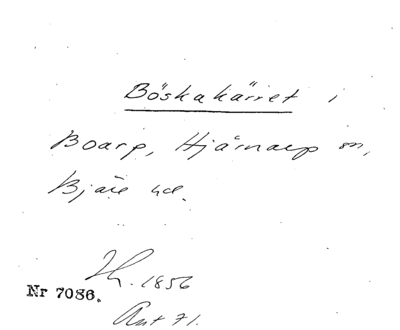 Böskakärret i
Boarp, Hjärnarp sn,
Bjäre hd.
Lh. 1856
Nr 7086.
Ant 71.